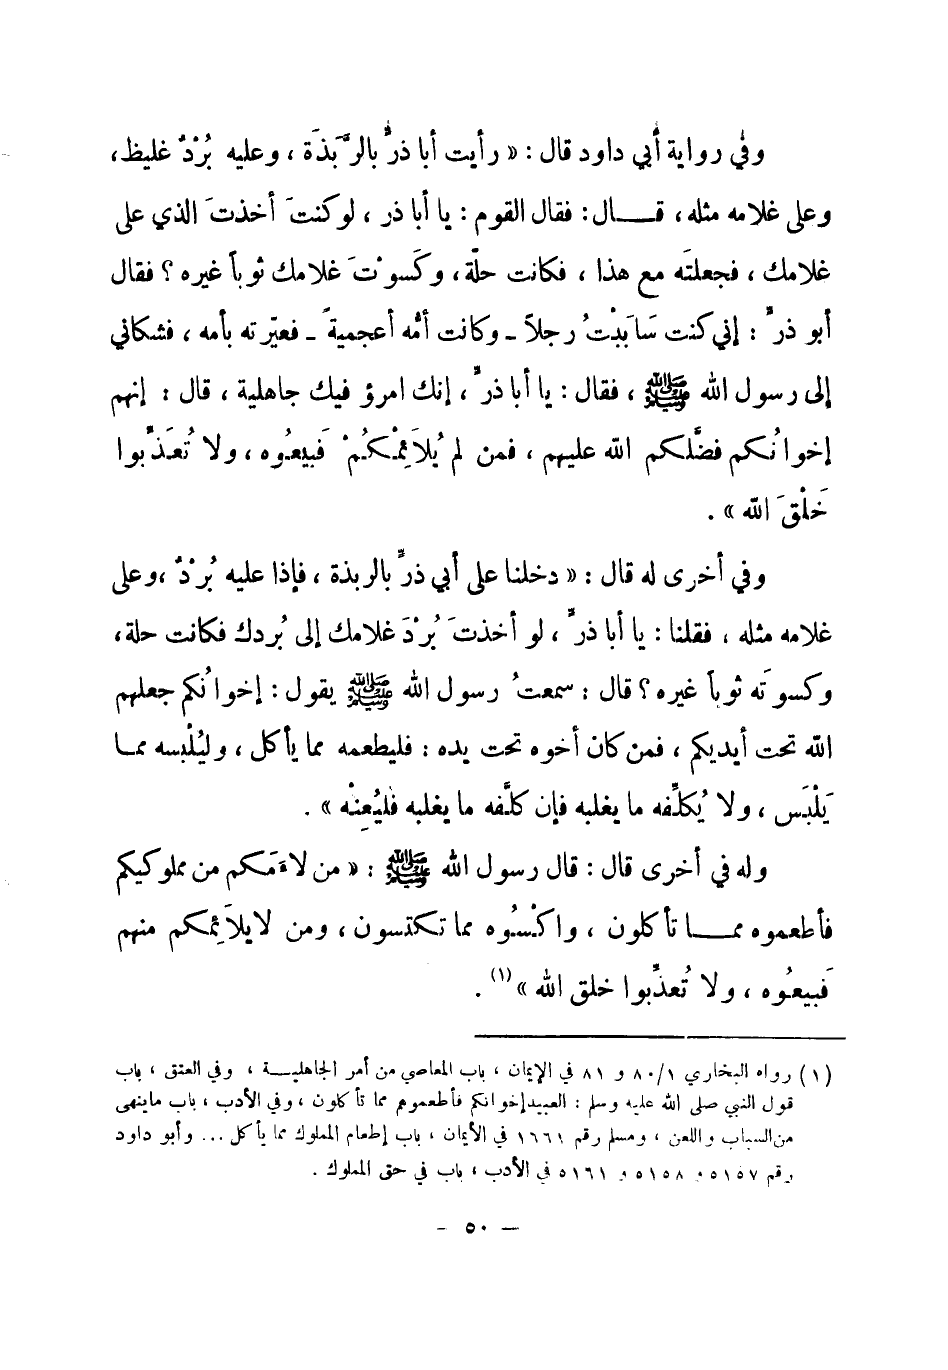 وفي رواية أبي داود قال : « رأيت أبا ذرٍّ بالرَّبَذَة ، وعليه بُرْدٌ غليظ،
وعلى غلامه مثله، قـــال: فقال القوم : يا أبا ذر ، لو كنتَ أخذتَ الذي على
غلامك ، فجعلتَه مع هذا ، فكانت حلّة، وكَسوْتَ غلامك ثوباً غيره ؟ فقال
أبو ذرٍّ : إني كنت سَابَبْتُ رجلاً ـ وكانت أمُّه أعجميةً ـ فعيّرته بأمه ، فشكاني
إلى رسول الله ﷺ ، فقال : يا أبا ذرٍّ ، إنك امرؤ فيك جاهلية ، قال : إنهم
إخوانُكم فضَّلكم الله عليهم ، فمن لم يُلَائِمْكُمْ فَبيعُوه ، ولا تُعَذِّبوا
خَلْقَ الله » .
وفي أخرى له قال : « دخلنا على أبي ذرٍّ بالربذة ، فإذا عليه بُرْدٌ ،وعلى
غلامه مثله ، فقلنا : يا أبا ذرٍّ ، لو أخذتَ بُرْدَ غلامك إلى بُردك فكانت حلة،
وكسوتَه ثوباً غيره ؟ قال : سمعتُ رسول الله ﷺ يقول : إخوانُكم جعلهم
الله تحت أيديكم ، فمن كان أخوه تحت يده : فليطعمه مما يأكل ، وليُلْبسه ممـا
يَلْبَس ، ولا يُكلِّفه ما يغلبه فإن كلَّفه ما يغلبه فليُعِنْه » .
وله في أخرى قال : قال رسول الله ﷺ : « من لاءَمَكم من مملوكيكم
فأطعموه ممـــا تأكلون ، واكْسُوه مما تكتسون ، ومن لايلائِمكم منهم
فَبيعُوه ، ولا تُعذِّبوا خلق الله »(١) .
(١) رواه البخاري ٨٠/١ و ٨١ في الإيمان ، باب المعاصي من أمر الجاهليـــة ، وفي العتق ، باب
قول النبي صلى الله عليه وسلم : العبيد إخوانكم فأطعموهم مما تأكلون ، وفي الأدب ، باب ماينهى
من السباب واللعن ، ومسلم رقم ١٦٦١ في الأيمان ، باب إطعام المملوك مما يأكل ... وأبو داود
رقم ٥١٥٧ و ٥١٥٨ و ٥١٦١ في الأدب ، باب في حق المملوك .
— ٥٠ -